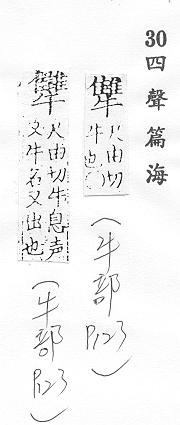 30四聲篇海
火由切
牛也
(牛部P123)
犫
火由切牛息声
又牛名又出也
(牛部P123)